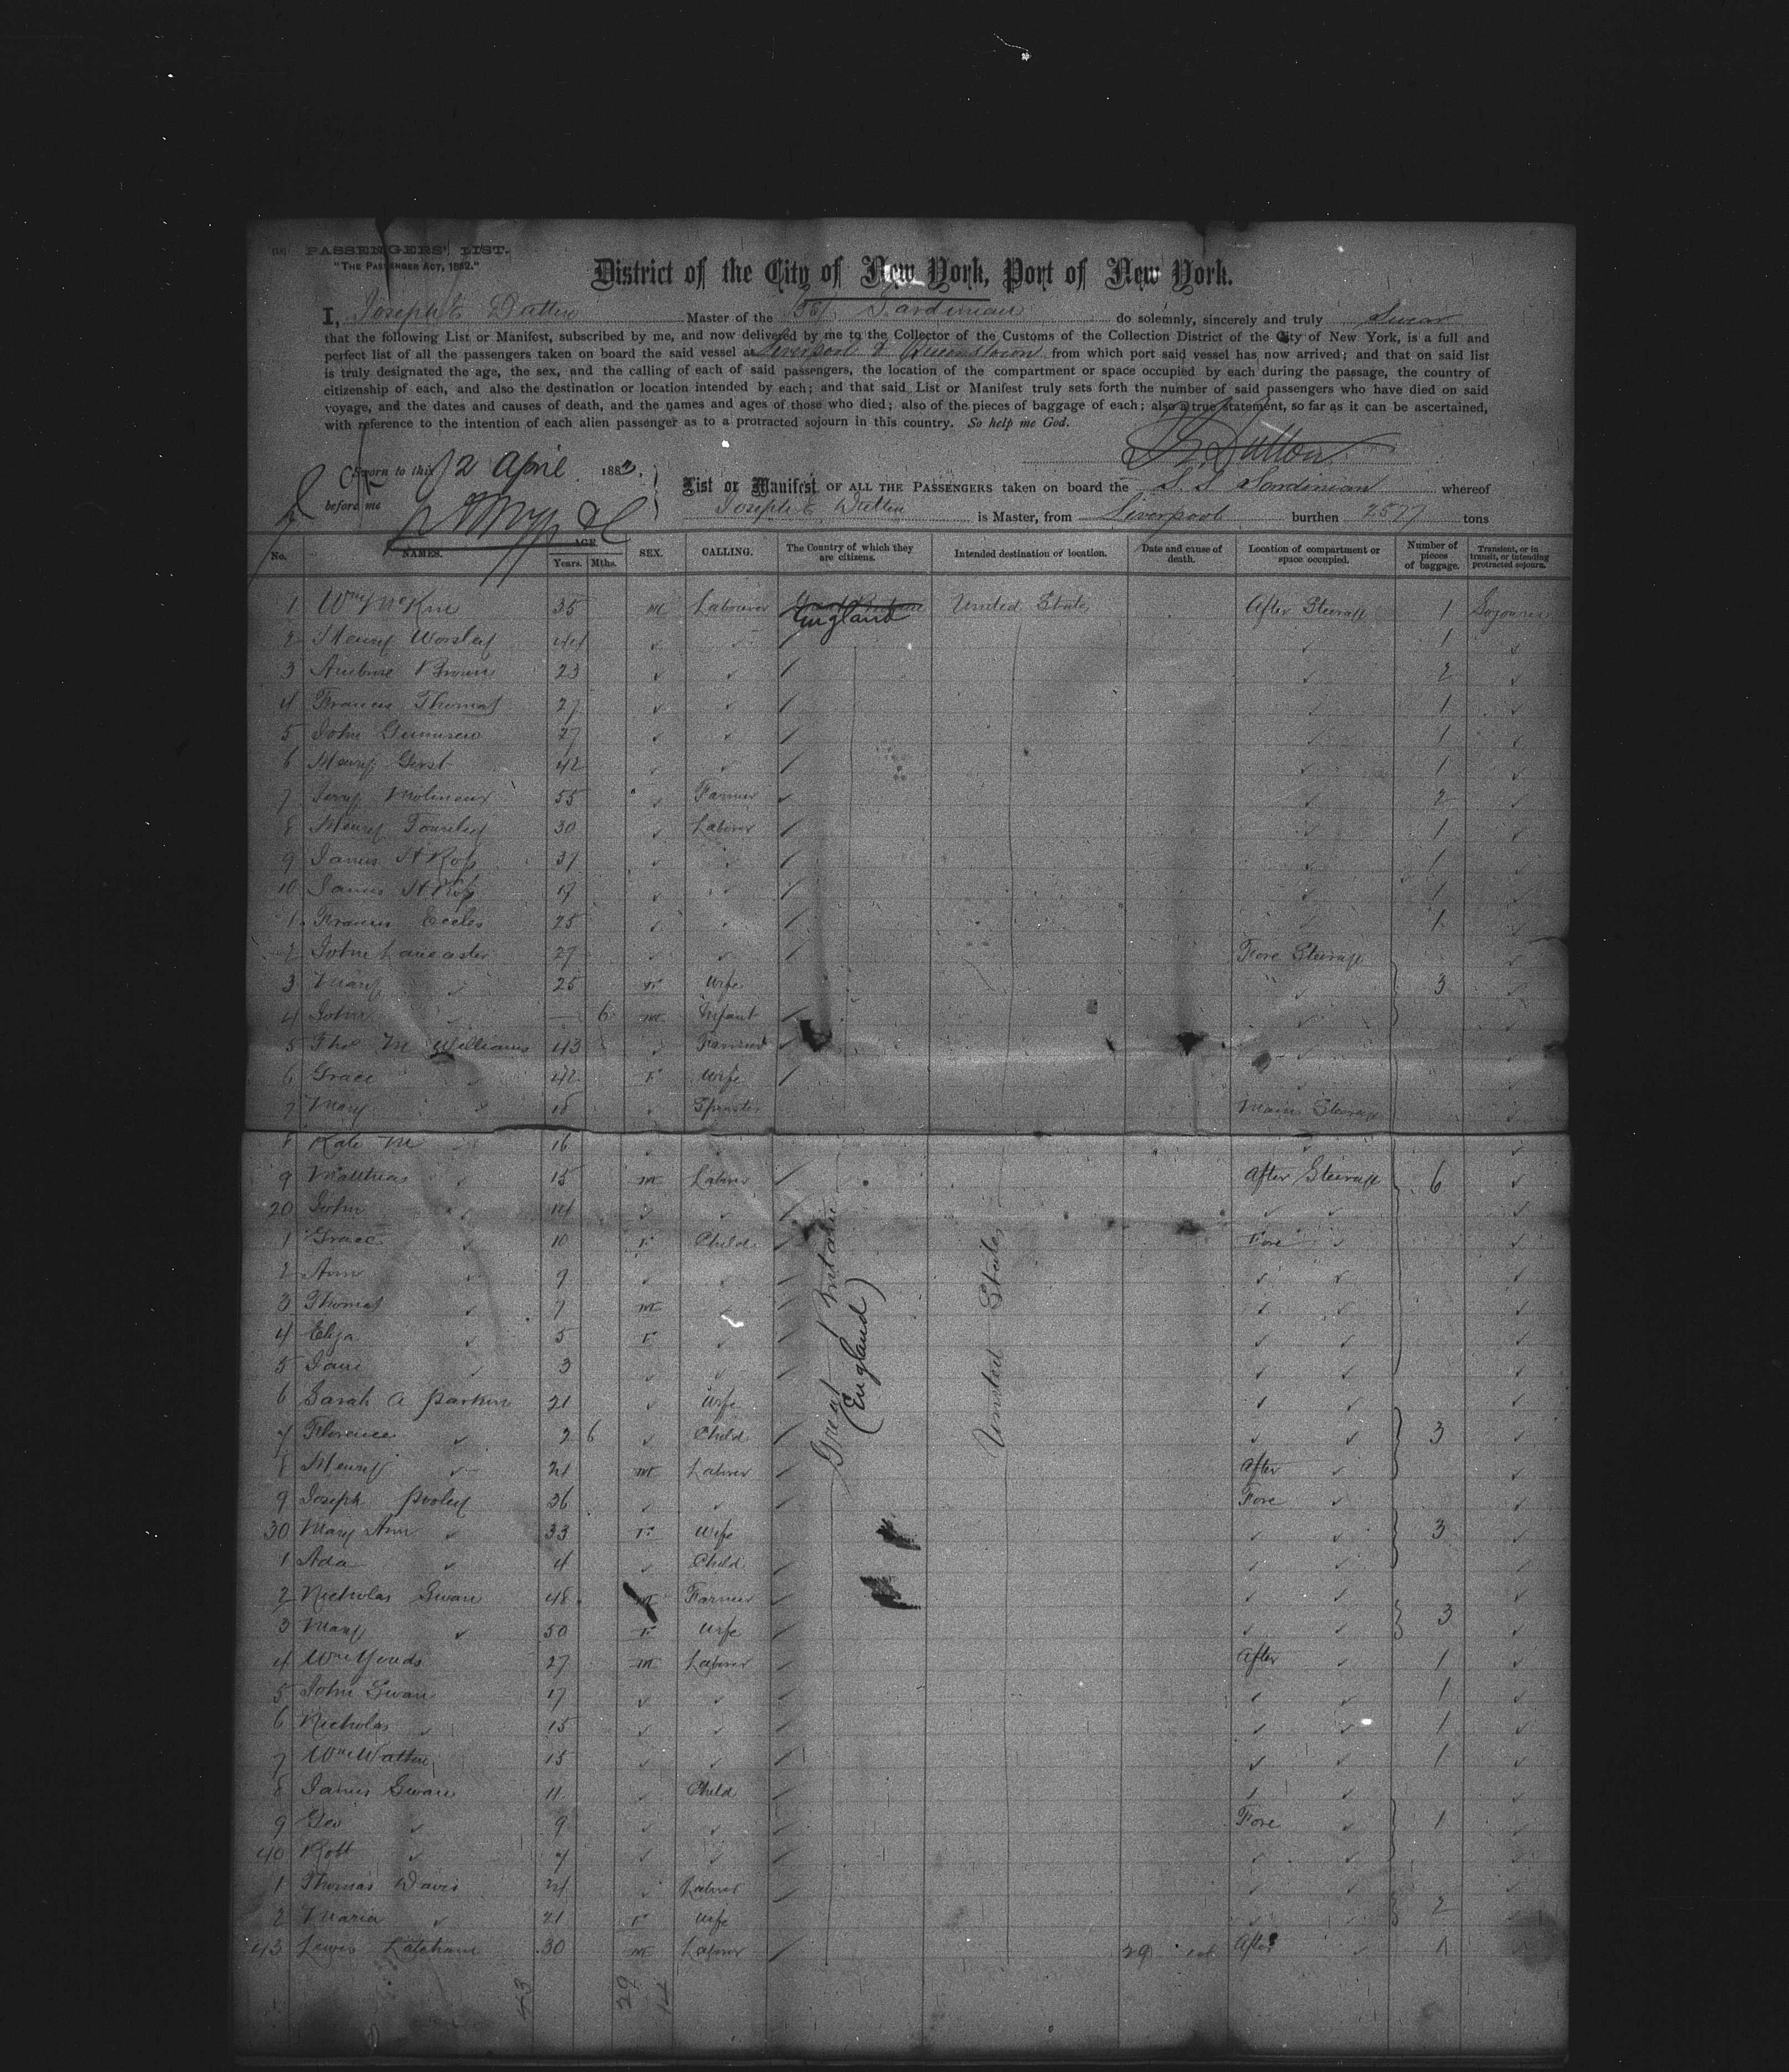 PASSENGERS' LIST.
"THE PASSENGER ACT, 1882."
District of the City of New York, Port of New York.
I, Joseph E Dutton Master of the SS/ Sardinian do solemnly, sincerely and truly Swear
that the following List or Manifest, subscribed by me, and now delivered by me to the Collector of the Customs of the Collection District of the City of New York, is a full and
perfect list of all the passengers taken on board the said vessel at Liverpool & Queenstown from which port said vessel has now arrived; and that on said list
is truly designated the age, the sex, and the calling of each of said passengers, the location of the compartment or space occupied by each during the passage, the country of
citizenship of each, and also the destination or location intended by each; and that said List or Manifest truly sets forth the number of said passengers who have died on said
voyage, and the dates and causes of death, and the names and ages of those who died; also of the pieces of baggage of each; also a true statement, so far as it can be ascertained,
with reference to the intention of each alien passenger as to a protracted sojourn in this country. So help me God.
Dutton
Sworn to this 12 April 1883
before me
List or Manifest OF ALL THE PASSENGERS taken on board the S.S Sardinian whereof
Joseph E Dutton is Master, from Liverpool burthen 2577 tons
No. NAMES. AGE Years. Mths. SEX. CALLING. The Country of which they are citizens. Intended destination or location. Date and cause of death. Location of compartment or space occupied. Number of pieces of baggage. Transient, or in transit, or intending protracted sojourn.
1 Wm 35 m Labourer Great Britain England United States After Steerage 1 Sojourn
2 Henry Worsley 44 1
3 Ambrose Brown 23 2
4 Francis Thomas 27 1
5 John 27 1
6 Henry 42 1
7 Molineux 55 Farmer 2
8 Henry Townley 30 Labourer 1
9 James H Ross 37 1
10 James H Ross 17 1
1 Francis Eccles 25 1
2 John Lancaster 27 Fore Steerage
3 Mary 25 F Wife 3
4 John — 6 m Infant
5 Thos M Williams 43 Farmer
6 Grace 42 F Wife
7 Mary 18 Spinster Main Steerage
8 Kate M 16
9 Matthias 15 m Labourer After Steerage 6
20 John 14
1 Grace 10 F Child Fore
2 Ann 9
3 Thomas 7 m
4 Eliza 5 F
5 Jane 3
Great Britain
(England)
United States
6 Sarah A Parkin 21 Wife
7 Florence 2 6 Child 3
8 Henry 21 m Labourer After
9 Joseph Pooley 36 Fore
30 Mary Ann 33 F Wife 3
1 Ada 4 Child
2 Nicholas Gwan 48 m Farmer
3 Mary 50 F Wife 3
4 Wm 27 m Labourer After 1
5 John Gwan 17 1
6 Nicholas 15 1
7 Wm 15 1
8 James Gwan 11 Child
9 Geo 9 Fore 1
40 Robt 7
1 Thomas Davis 24 Labourer
2 Maria 21 F Wife 2
43 Lewis 30 m Labourer 29 After 1
43 29 14